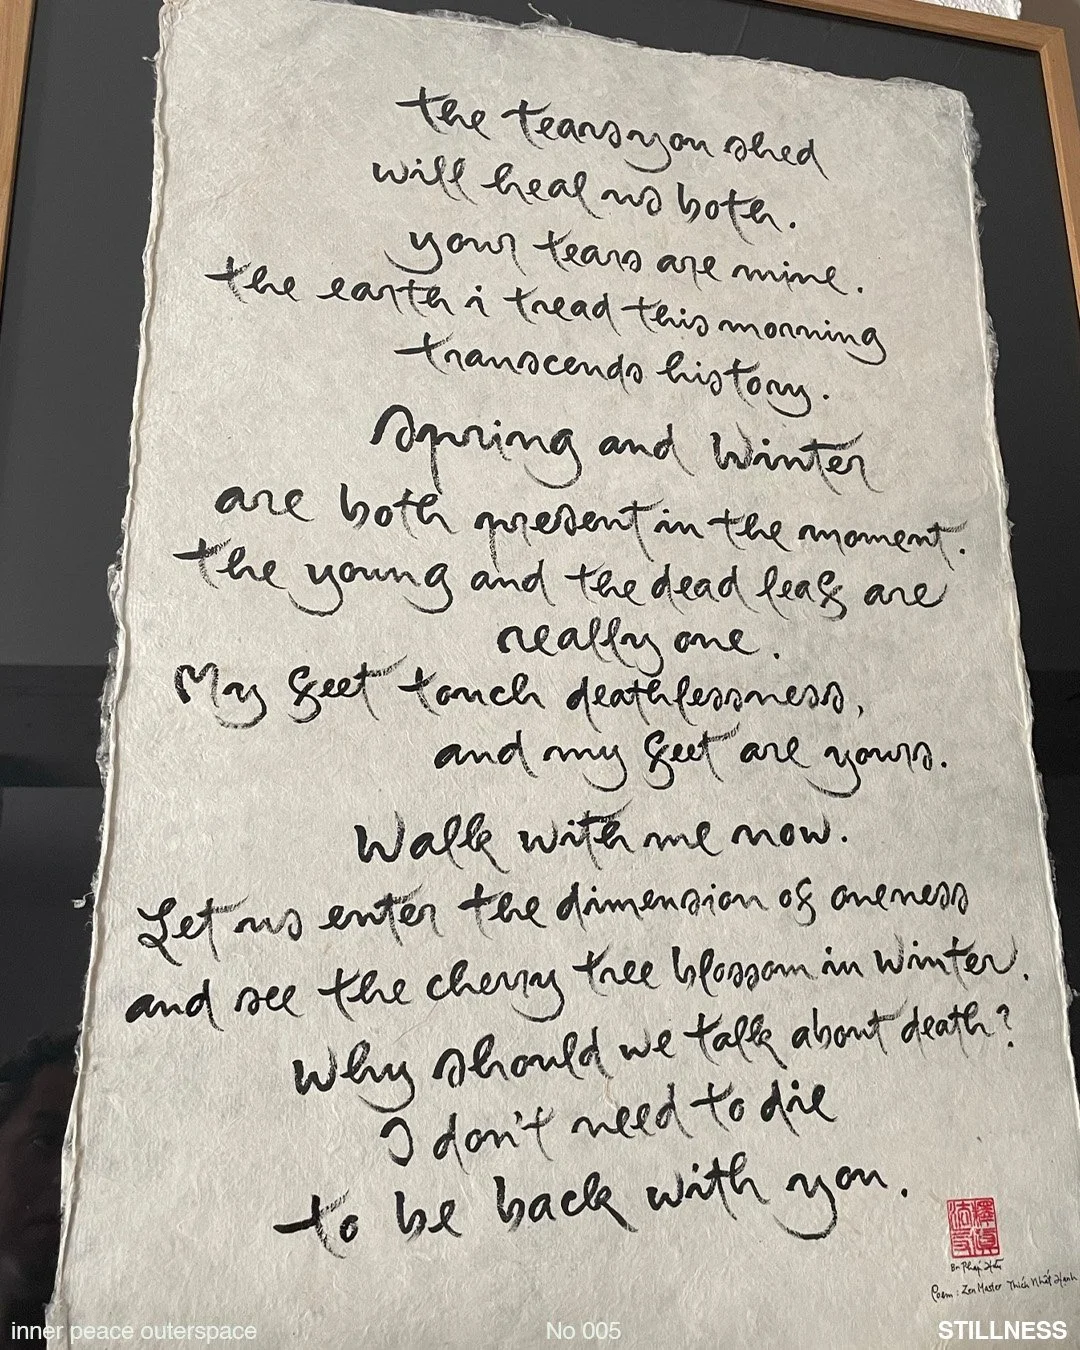 the tears you shed
will heal us both.
your tears are mine.
the earth i tread this morning
transcends history.
Spring and Winter
are both present in the moment.
the young and the dead leaf are
really one.
My feet touch deathlessness,
and my feet are yours.
Walk with me now.
Let us enter the dimension of oneness
and see the cherry tree blossom in Winter.
Why should we talk about death?
I don't need to die
to be back with you.
Br Pháp Hữu
Poem: Zen Master Thích Nhất Hạnh
inner peace outerspace
No 005
STILLNESS